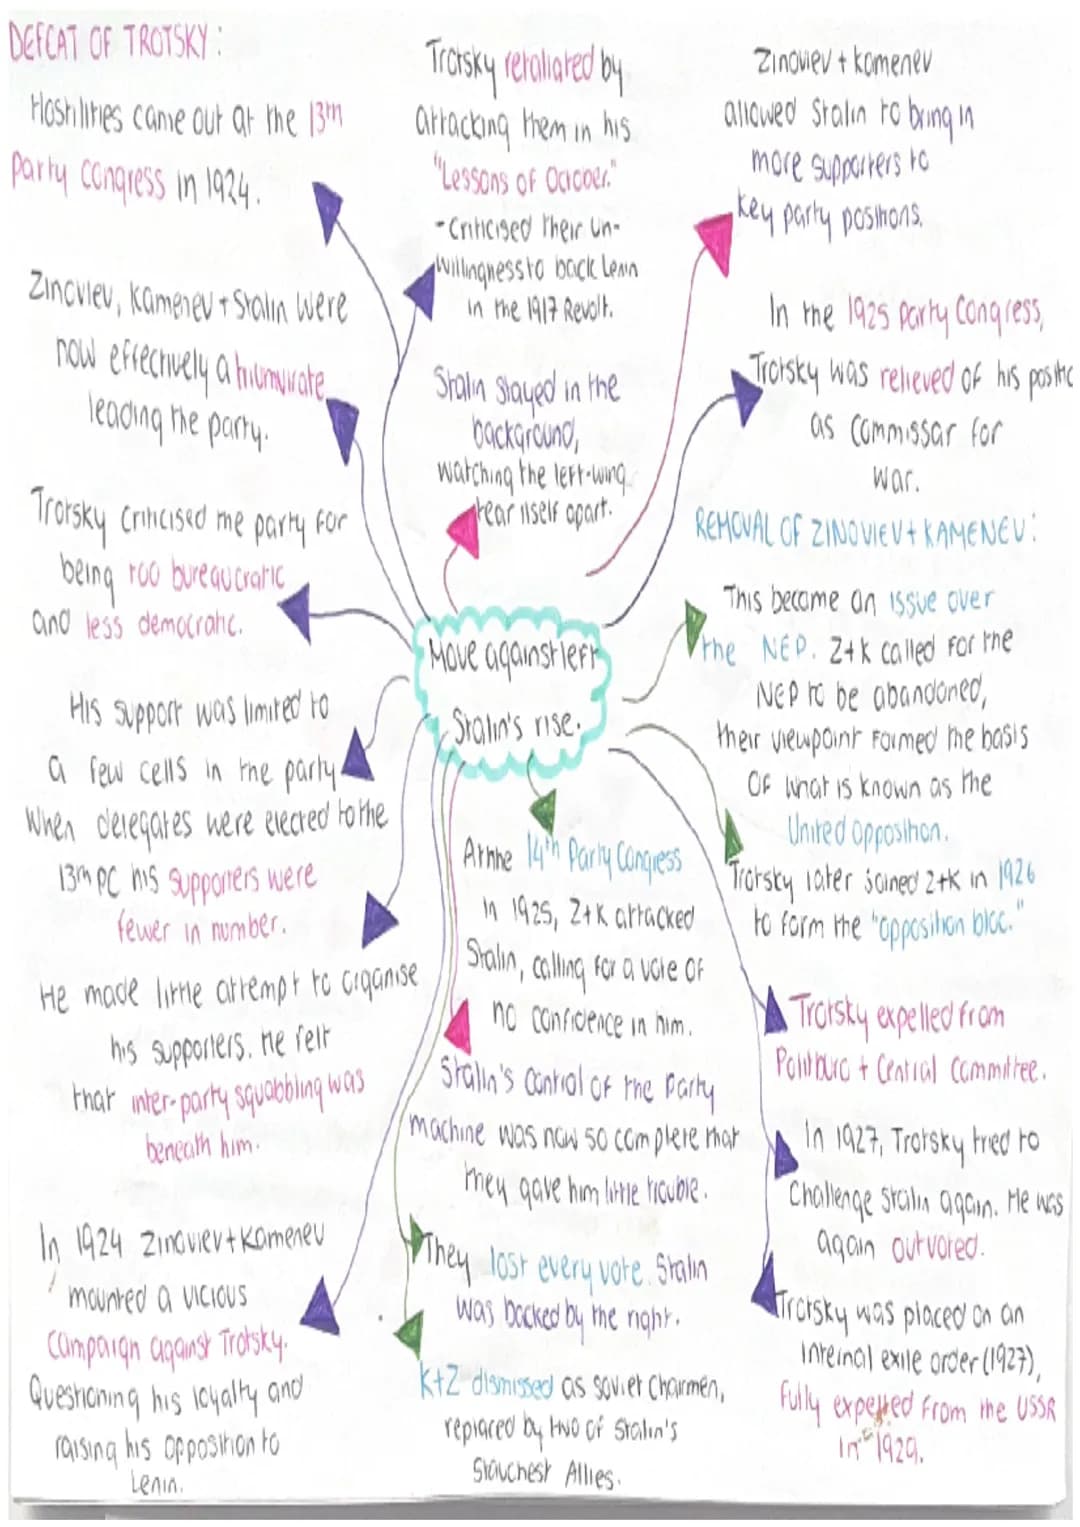 DEFEAT OF TROTSKY:
Hostilities came out at the 13th
Party Congress in 1924.
Zinoviev, Kamenev + Stalin were
now effectively a triumvirate
leading the party.
Trotsky criticised the party for
being too bureaucratic
and less democratic.
His support was limited to
a few cells in the party
When delegates were elected to the
13th PC his supporters were
fewer in number.
He made little attempt to organise
his supporters. He felt
that inter-party squabbling was
beneath him.
In 1924 Zinoviev + Kamenev
mounted a vicious
campaign against Trotsky.
Questioning his loyalty and
raising his opposition to
Lenin.
Trotsky retaliated by
attacking them in his
"Lessons of October."
- Criticised their un-
willingness to back Lenin
in the 1917 Revolt.
Stalin stayed in the
background,
watching the left-wing
tear itself apart.
Move against left
Stalin's rise.
At the 14th Party Congress
in 1925, Z+K attacked
Stalin, calling for a vote of
no confidence in him.
Stalin's control of the party
machine was now so complete that
they gave him little trouble.
They lost every vote. Stalin
was backed by the right.
K+Z dismissed as soviet chairmen,
replaced by two of Stalin's
Stauchest Allies.
Zinoviev + Kamenev
allowed Stalin to bring in
more supporters to
key party positions.
In the 1925 Party Congress,
Trotsky was relieved of his positio
as commissar for
war.
REMOVAL OF ZINOVIEV + KAMENEV:
This become an issue over
the NEP. Z+K called for the
NEP to be abandoned,
their viewpoint formed the basis
of what is known as the
United Opposition.
Trotsky later joined Z+K in 1926
to form the "opposition bloc."
Trotsky expelled from
Politburo + Central Committee.
In 1927, Trotsky tried to
challenge Stalin again. He was
again outvoted.
Trotsky was placed on an
internal exile order (1927),
fully expelled from the USSR
in 1929.